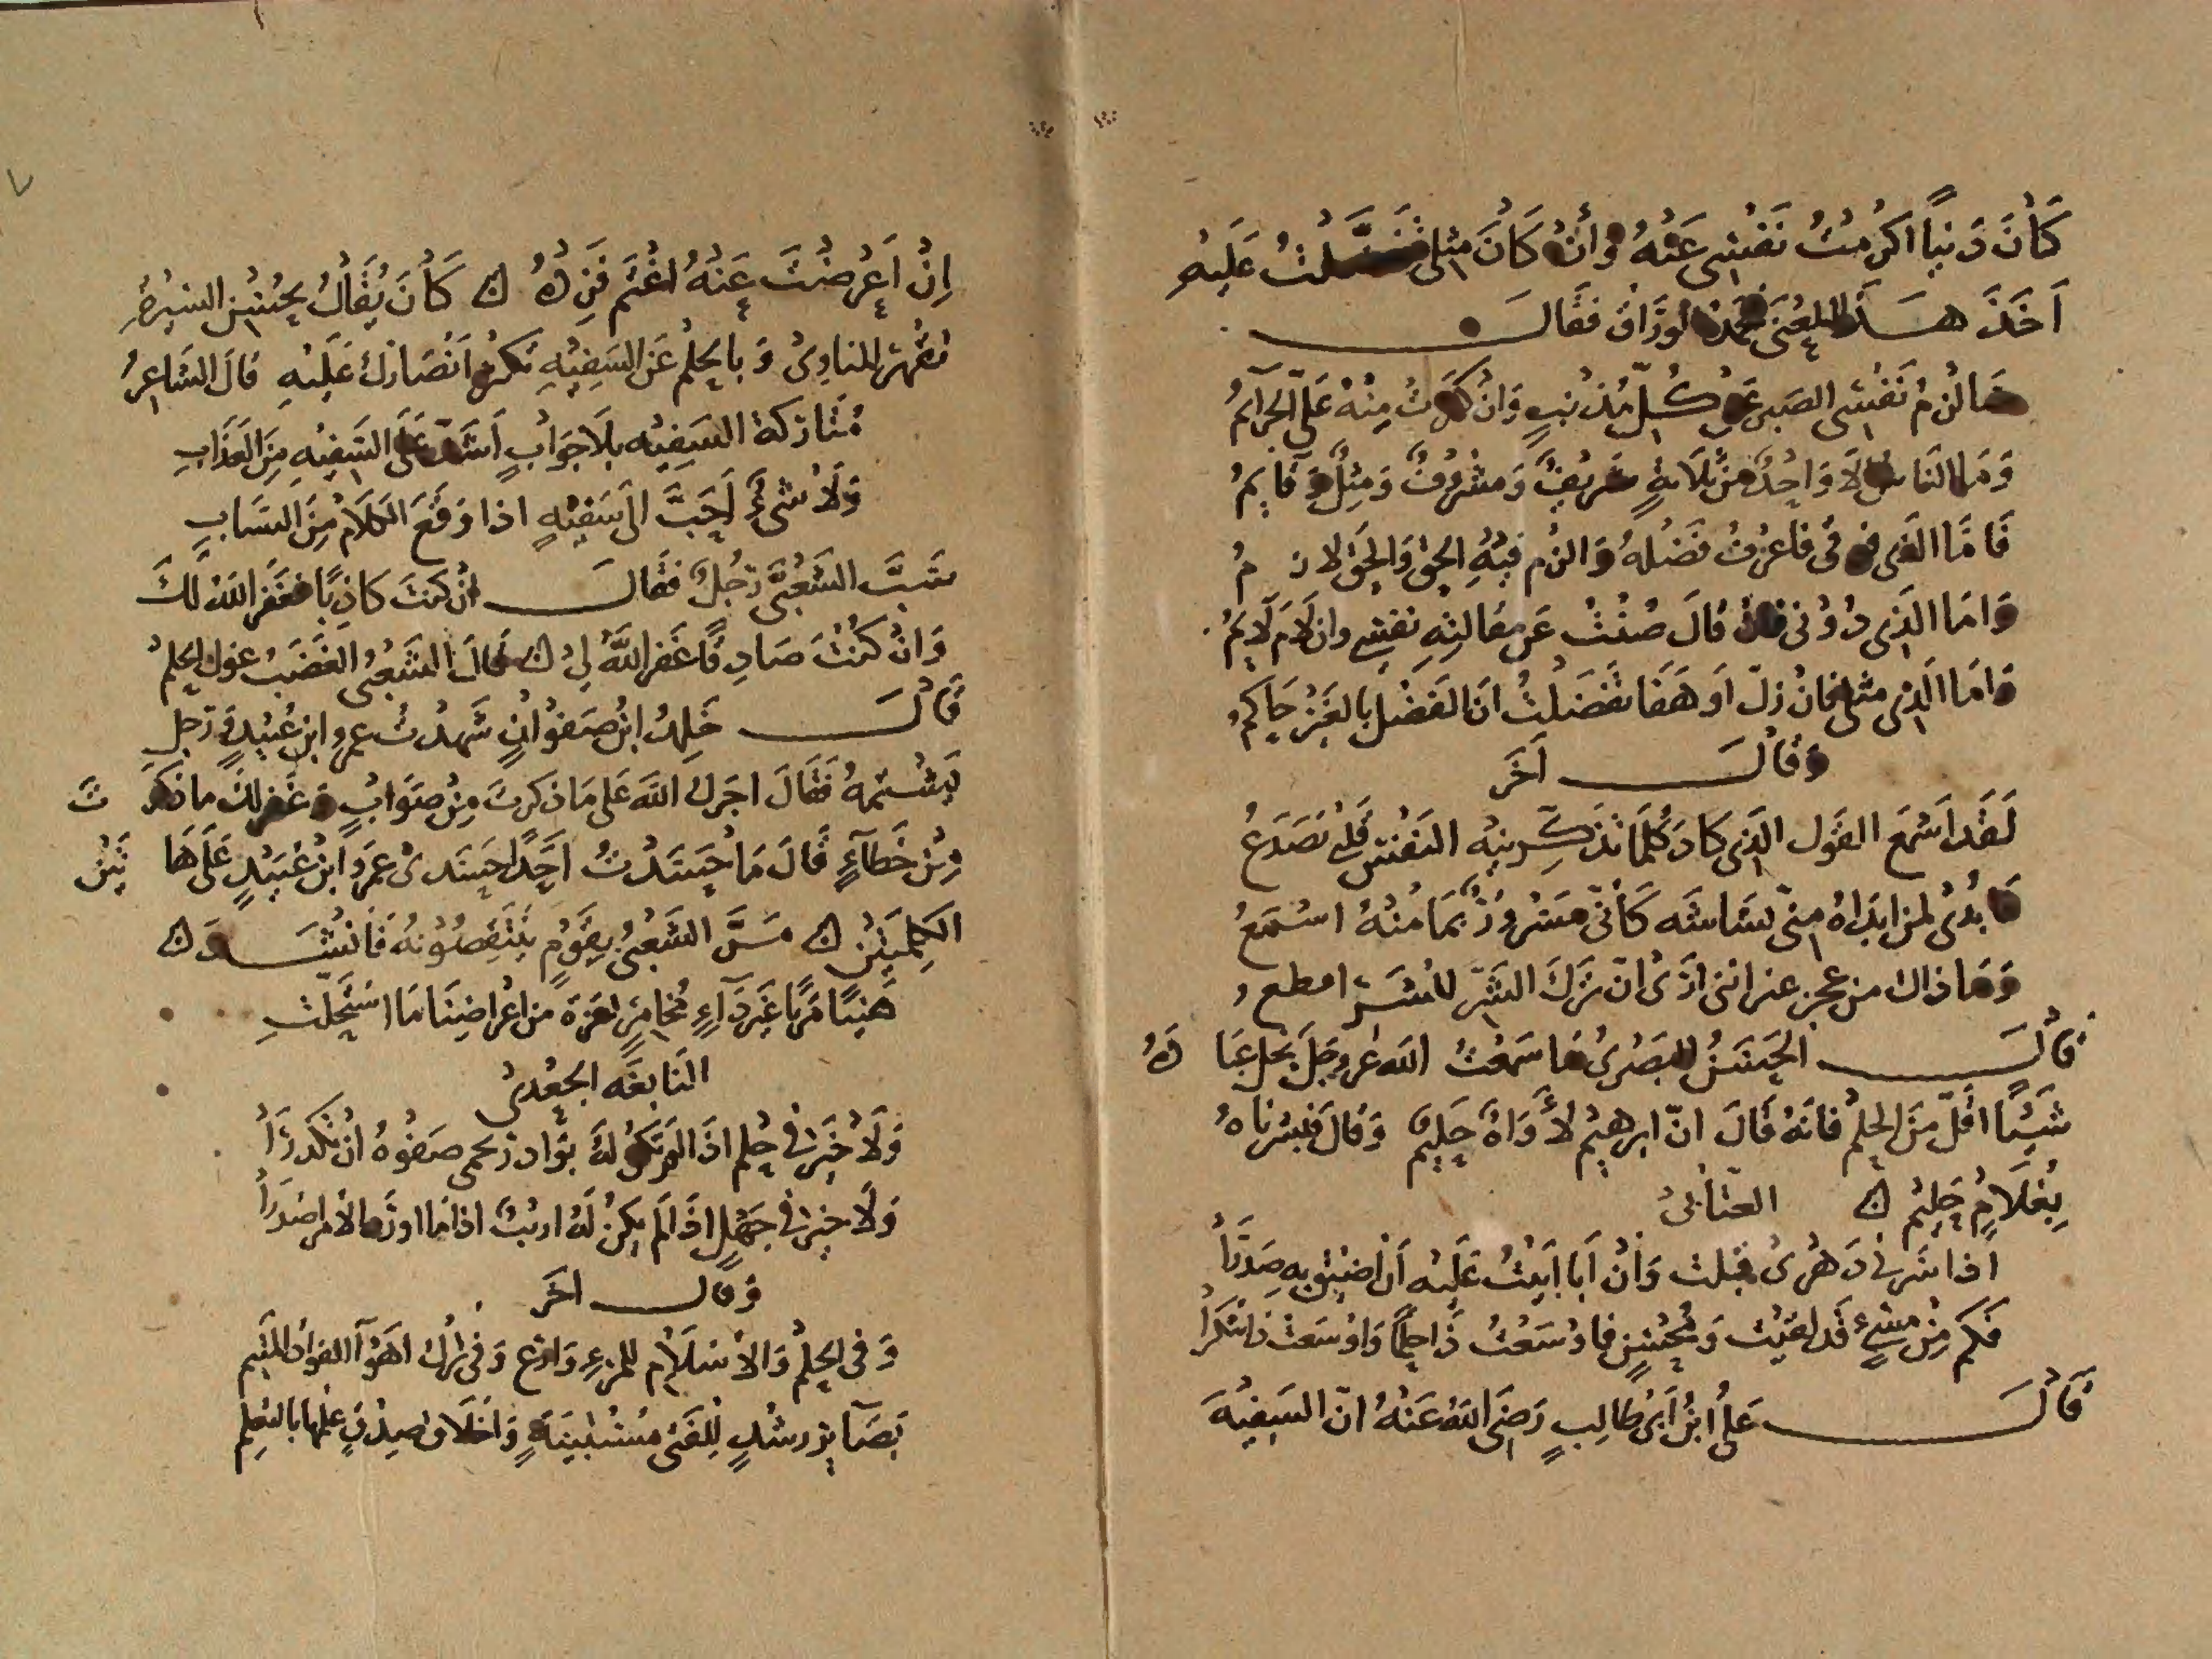 كَانَ دَنيًا اكرمتُ نَفْسِى عَنْهُ وَانْ كَانَ مثلى تفضلتُ عَلَيهِ
اَخَذَ هَذَا المعْنَى محمود الوَرَّاق فقَالَ
سَالْزمُ نَفْسِى الصبر عَن كُلِّ مُذنبٍ وَانْ كثرتْ مِنْهُ عَلَىَّ الجرَآئمُ
وَمَا النَاسُ الَّا وَاحِدٌ مِنْ ثلَاثةٍ شريفٌ وَمشْرُوفٌ وَمثلٌ مُقَاومُ
فَامَّا الذى فوقى فاعْرفُ فضْلهُ وَالزم فيْهِ الحق وَالحق لازمُ
وَامَا الذى دُوْنى فان قَالَ صُنْتُ عَن مقالتِهِ نَفْسِى وان لَامَ لَائمُ
وَامَا الذى مثلى فان زلّ اَو هَفَا تفَضَلتُ انَ الفضْل بالعَز حَاكِمُ
وَقَالَ آخَر
لَقَد اَسْمَع القَول الذى كادَ كلمَا تذكّرنيْه النَفْس قلبى تصَدَعُ
فَابْدِىْ لمن ابدَاهُ مِنّى بشاشَه كَأنّى مَسْرُورٌ بمَا مِنْهُ اسْمَعُ
وَمَا ذاك من عجزٍ عنه انى ارَىْ انّ تركَ الشَرّ للشر اقطع
قَالَ الحَسَنُ البَصْرِىُّ مَا سَمعْتُ اللّٰه عز وجَلَ نحل عبَادَهُ
شَيْئًا اقَلّ مِنَ الحِلْمِ فَانَّهُ قَالَ انّ ابرهِيْمَ لَأَوَّاهٌ حَلِيمٌ وَقَالَ فَبَشَّرنَاهُ
بِغُلَامٍ حَلِيْمٍ ن العتابىُّ
اذا سَرنى دَهْرىْ قبلت وَانْ اَبا اَبَيْتُ عَلَيْه اَنْ اضيْق به صَدَرَا
فَكم مِنْ مسىءٍ قَد لقيْت وَمُحْسِنٍ فاوْسَعْتُ ذَا حِلمًا وَاوْسَعْتُ ذا شكرَا
قَالَ عَلىُّ ابْنُ اَبِىْ طَالِبٍ رَضِىَ اللّٰهُ عَنْهُ انّ السَفِيْهَ
اِنْ اَعْرضْتَ عَنْهُ اغْتَمَ فَزِدْهُ ن كَانَ يُقَالُ بحُسْنِ السِيْرَةِ
تقْهر المناوِىْ وَبالحِلْمِ عَنِ السَفِيْهِ تكثر اَنْصَارك عَلَيْهِ قالَ الشَاعِرُ
مُتَارَكة السَفِيْه بلَا جَوَابٍ اَشَدّ عَلَى السَفِيْهِ مِنَ العَذَابِ
وَلَا شىْءٌ اَحَبَّ الى سَفِيْهٍ اذا وَقَعَ الكَلَامُ مِنَ السَبَابِ
سَبَّ الشَعْبِىَّ رَجُلٌ فقَالَ انْ كنتَ كَاذِبًا فغفَر اللّٰه لكَ
وَانْ كنْتَ صَادِقًا غفر اللّٰه لِىْ ن قَالَ الشَعْبِىُّ الغَضَبُ غول الحِلْمِ
قَالَ خَلِدُ ابنُ صَفْوَانٍ شَهدْتُ عمرو ابن عُبَيْدٍ وَرَجل
يَشْتمهُ فقَالَ اجَرك اللّٰه عَلى مَا ذكرتَ مِنْ صَوَابٍ وَغَفر لكَ ما ذكرتَ
مِنْ خَطَآءٍ قَالَ مَا حَسَدْتُ اَحَدًا حَسَدىْ عمرو ابْن عُبَيْدٍ عَلَى هَاتَيْن
الكلِمَتَيْنِ ن مَرَّ الشَعْبِىُّ بقَوْمٍ يَنْتَقِصُوْنهُ فَانْشَدَ ن
هَنِيْئًا مَرِيًا غَيرَ دَآءٍ مُخَامِرٍ لعَزَةَ من اعْراضِنَا مَا اسْتَحَلّتِ
النَابغَه الجعْدىْ
وَلَا خَيْرَ فى حِلمٍ اذَا لم تكنْ لَهُ بوَادرُ تحمى صَفْوَهُ انْ يُكدّرَا
وَلَا خيْرَ فى جَهْلٍ اذَا لَم يكنْ لَهُ اريْبٌ اذا مَا اورَد الامر اصْدَرَا
وَقَالَ آخَر
وَفى الحِلْمِ وَالاسْلَام للمَرْءِ وَازع وَفى ترك اهْوَآ الفوَاد المتَيم
بَصَآئِر رشْدٍ لِلفَتىْ مُسْتبيْنَةٍ وَاخلَاق صِدْقٍ علمها بالتعلم